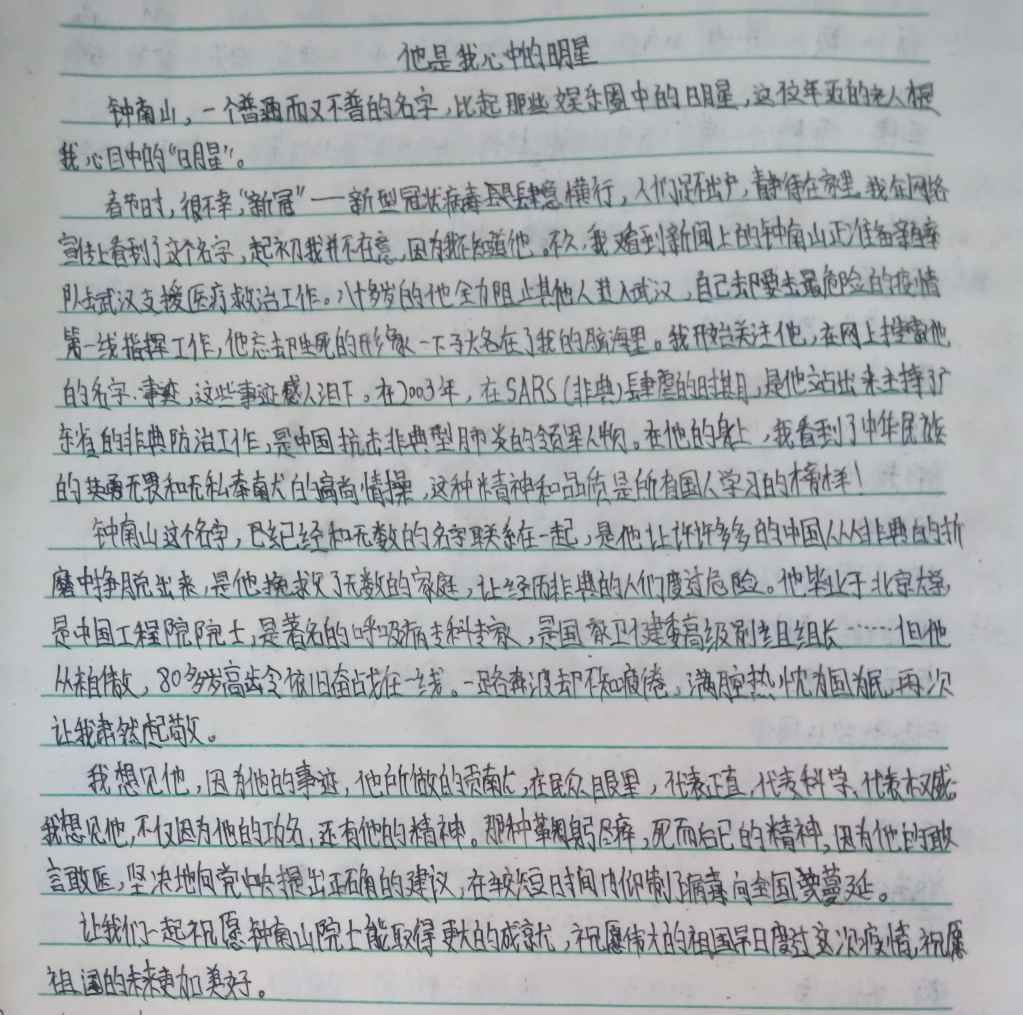 他是我心中的明星
钟南山，一个普通而又不普的名字，比起那些娱乐圈中的明星，这位年迈的老人便是
我心目中的“明星”。
春节时，很不幸，“新冠”——新型冠状病毒肆意横行，人们足不出户，静待在家里。我在网络
宣传上看到了这个名字，起初我并不在意，因为我不知道他。不久，我看到新闻上的钟南山正准备亲自率
队去武汉支援医疗救治工作。八十多岁的他全力阻止其他人进入武汉，自己却要去最危险的疫情
第一线指挥工作，他忘却生死的形象一下子大名在了我的脑海里。我开始关注他，在网上搜索他
的名字、事迹，这些事迹感人泪下。在2003年，在SARS(非典)肆虐的时期，是他站出来主持了广
东省的非典防治工作，是中国抗击非典型肺炎的领军人物。在他的身上，我看到了中华民族
的英勇无畏和无私奉献的高尚情操，这种精神和品质是所有国人学习的榜样！
钟南山这个名字，已经和无数的名字联系在一起，是他让许许多多的中国人从非典的折
磨中挣脱出来，是他挽救了无数的家庭，让经历非典的人们度过危险。他毕业于北京大学，
是中国工程院院士，是著名的呼吸病专科专家，是国家卫健委高级别组组长……但他
从未自傲，80多岁高龄依旧奋战在一线。一路奔波却不知疲倦，满腔热忱为国为民，再次
让我肃然起敬。
我想见他，因为他的事迹，他所做的贡献，在民众眼里，代表正直，代表科学，代表权威。
我想见他，不仅因为他的功名，还有他的精神。那种鞠躬尽瘁，死而后已的精神，因为他的敢
言敢医，坚决地向党中央提出正确的建议，在较短时间内抑制了病毒向全国蔓延。
让我们一起祝愿钟南山院士能取得更大的成就，祝愿伟大的祖国早日度过这次疫情，祝愿
祖国的未来更加美好。